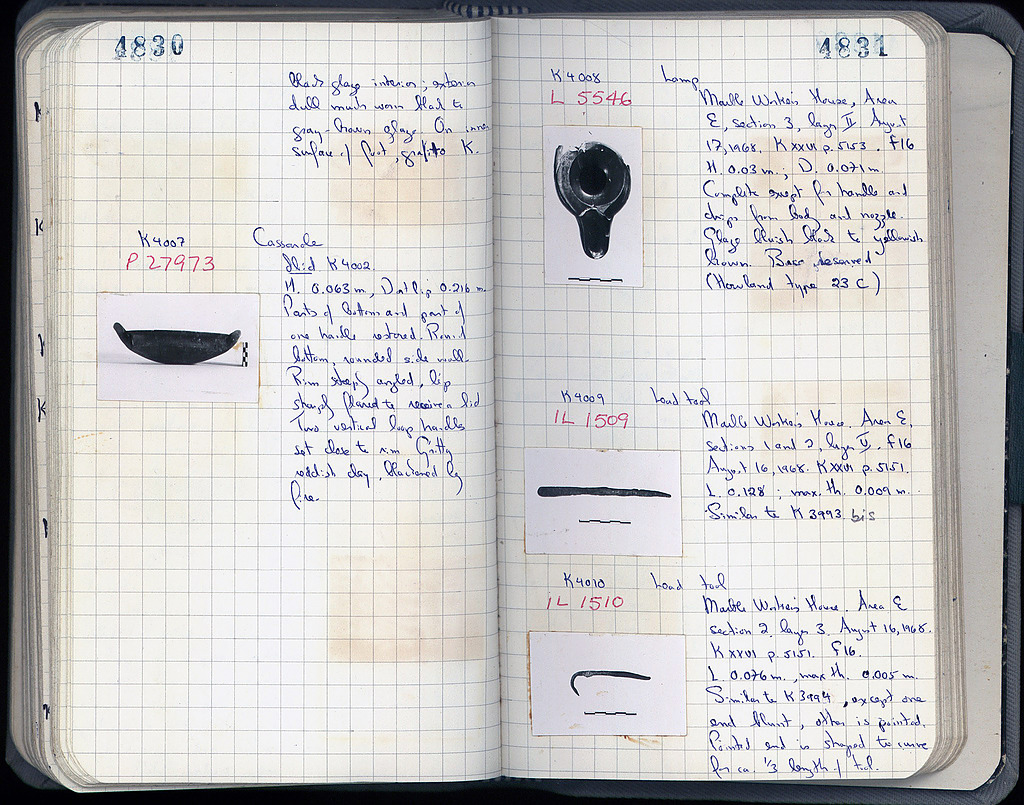 4830
black glaze interior; exterior
dull much worn black to
gray-brown glaze. On inner
surface of foot, graffito K.
K4007
P 27973
Casserole
Ibid K4002
H. 0.063 m, D at lip 0.216 m.
Parts of bottom and part of
one handle restored. Round
bottom, rounded side wall.
Rim steeply angled, lip
sharply flared to receive a lid
Two vertical loop handles
set close to rim Gritty
reddish clay, blackened by
fire.
4831
K4008
L 5546
Lamp
Marble Worker's House, Area
E, section 3, layer II August
17, 1968. K XXVI p. 5153. f16
H. 0.03 m., D. 0.071 m
Complete except for handle and
chips from body and nozzle.
Glaze bluish black to yellowish
brown Base reserved
(Howland type 23 C)
K4009
IL 1509
Lead tool
Marble Worker's House. Area E,
sections 1 and 2, layer II. f16
August 16, 1968. K XXVI p. 5151.
L. 0.128; max. th. 0.009 m.
Similar to K 3993 bis
K4010
IL 1510
Lead tool
Marble Worker's House. Area E
section 2, layer 3. August 16, 1968.
K XXVI p. 5151. f16.
L. 0.076 m., max th. 0.005 m.
Similar to K3994, except one
end blunt, other is pointed.
Pointed end is shaped to curve
for ca. 1/3 length of tool.